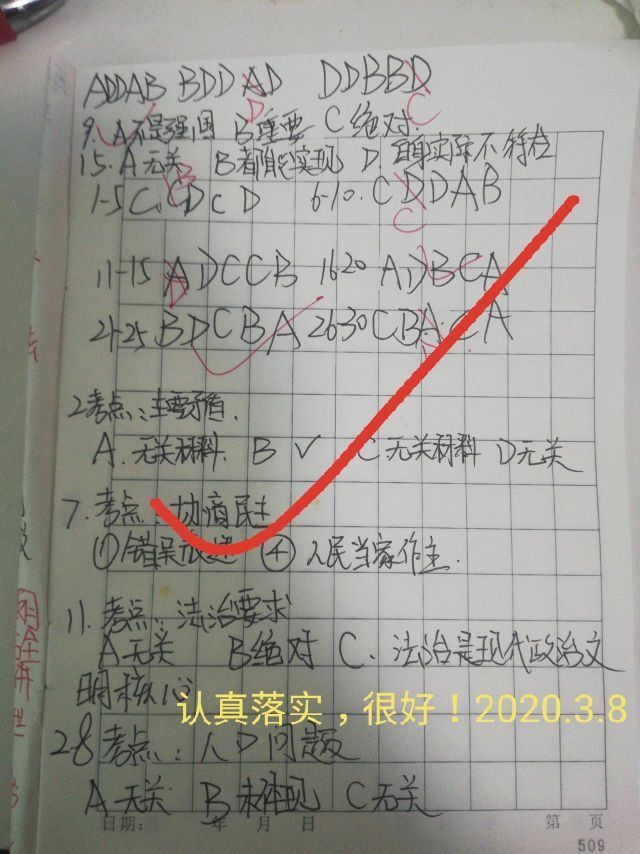 ADDAB BDDAD DDBBD
D
C
9. A不是强国 B重要 C绝对.
15. A无关 B都能实现 D 与实际不符
1-5 C.CDCD 6-10. CDDAB
B
C
11-15 ADCCB 16-20 ADBCA
D
21-25 BDCBA 26-30 CBA.CA
2考点:主要矛盾.
A.无关材料. B ✓ C无关材料 D无关
7.考点:协商民主
①错误 ④人民当家作主.
11.考点:法治要求
A无关 B绝对 C.法治是现代政治文
明核心
认真落实，很好！2020.3.8
28考点:人口问题
A无关 B未体现 C无关
日期: 年 月 日 第 页
509